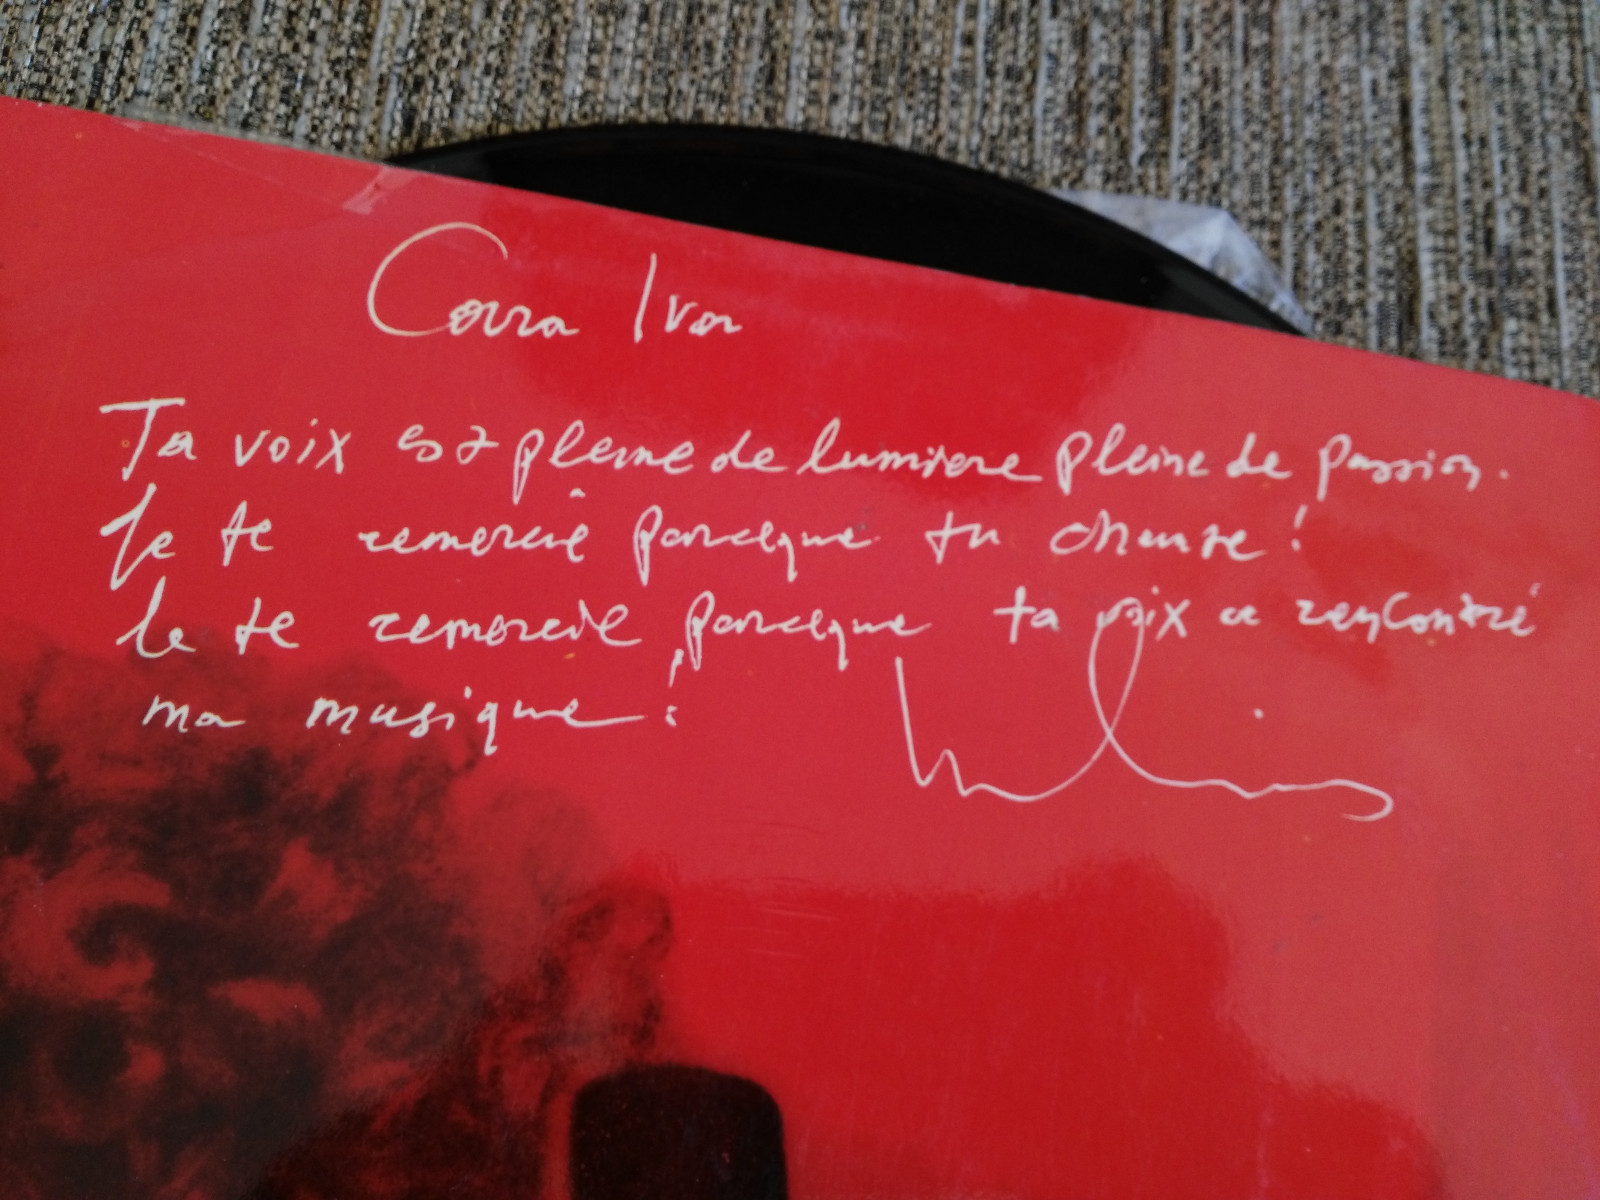 Carra Iva
Ta voix est pleine de lumiere pleine de passion.
Je te remercie parceque tu chante!
Je te remercie parceque ta voix a rencontré
ma musique!